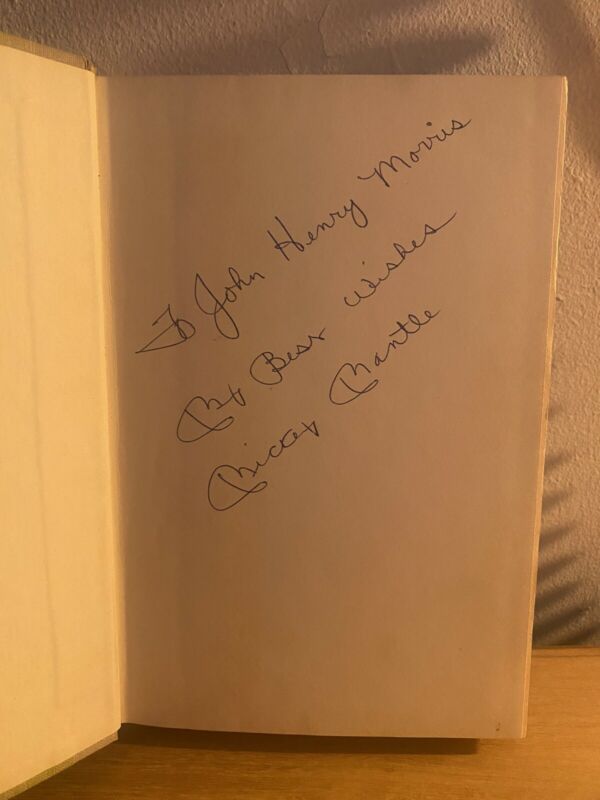 To John Henry Morris
My Best wishes
Mickey Mantle